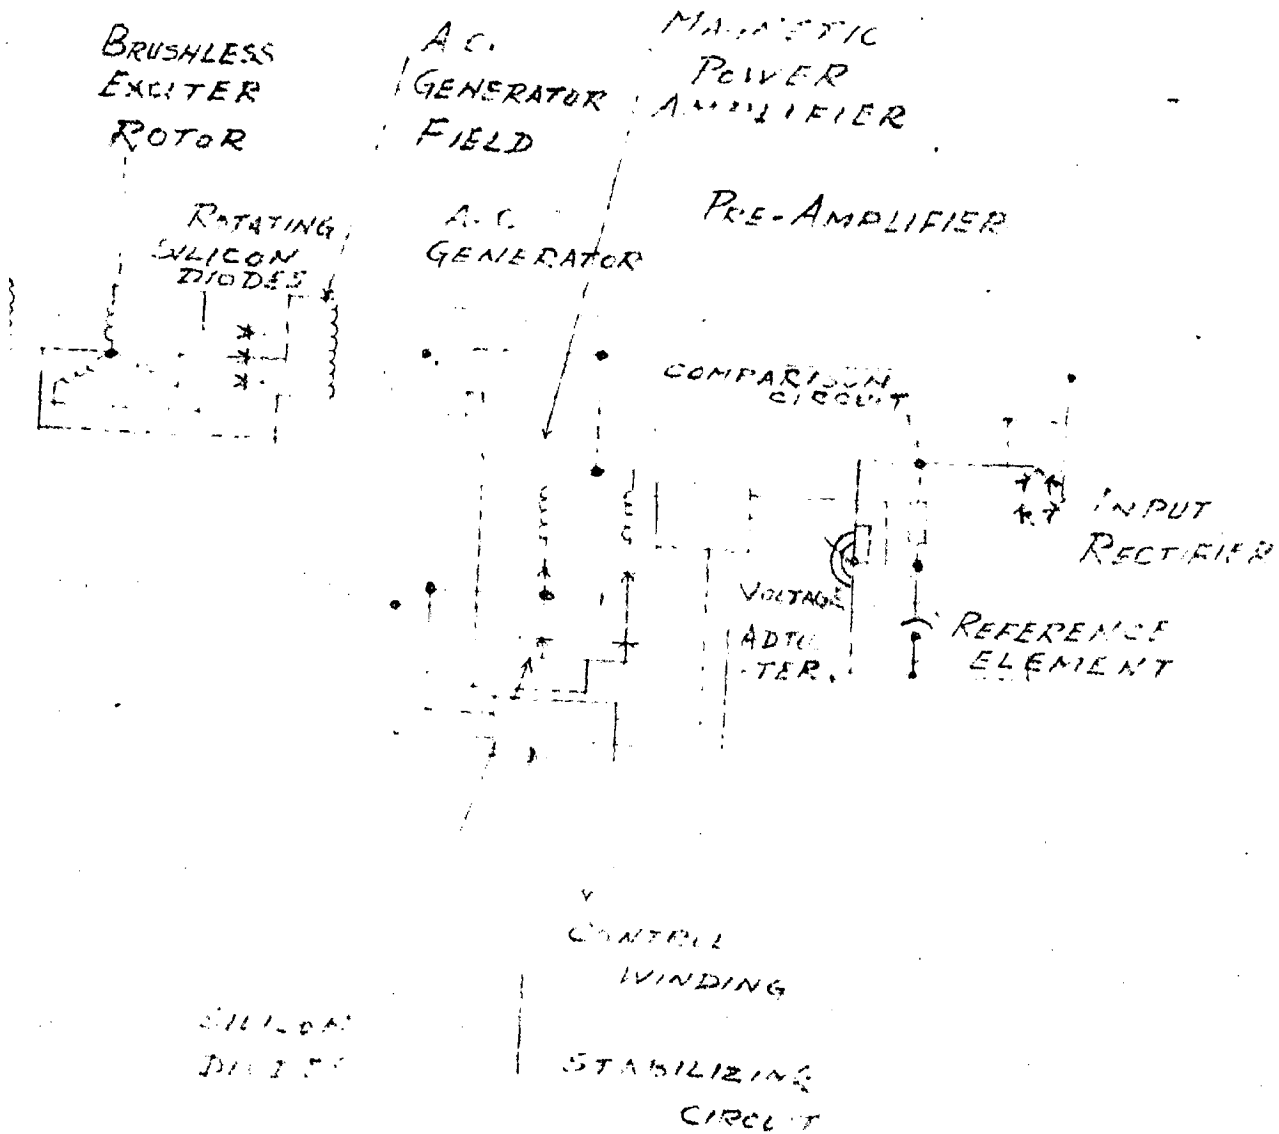 BRUSHLESS
EXCITER
ROTOR
A.C.
GENERATOR
FIELD
MAGNETIC
POWER
AMPLIFIER
ROTATING
SILICON
DIODES
A.C.
GENERATOR
PRE-AMPLIFIER
COMPARISON
CIRCUIT
INPUT
RECTIFIER
VOLTAGE
REFERENCE
ELEMENT
CONTROL
WINDING
SILICON
DIODES
STABILIZING
CIRCUIT